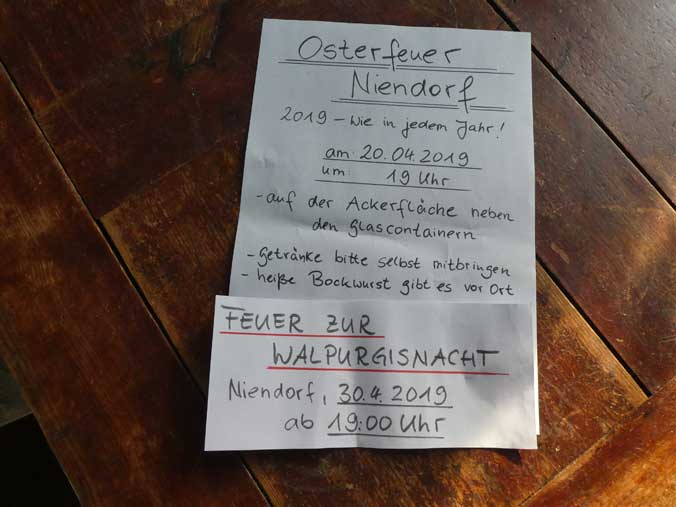 Osterfeuer
Niendorf
2019 - Wie in jedem Jahr!
am: 20.04.2019
um: 19 Uhr
- auf der Ackerfläche neben
den Glascontainern
- Getränke bitte selbst mitbringen
- heiße Bockwurst gibt es vor Ort
FEUER ZUR
WALPURGISNACHT
Niendorf, 30.4.2019
ab 19:00 Uhr